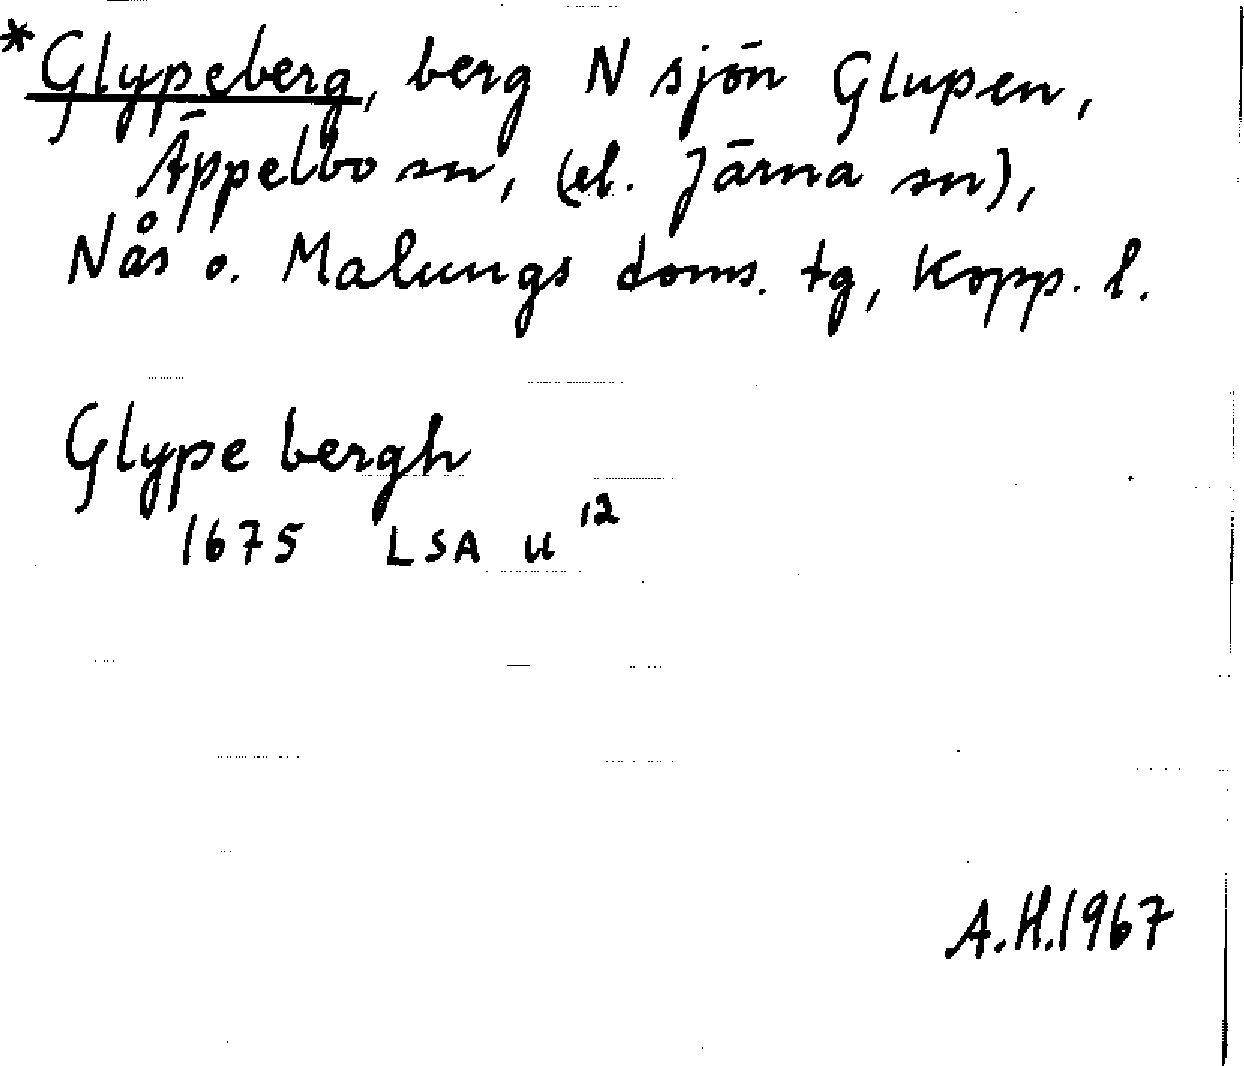 *Glypeberg, berg N sjön Glupen,
Äppelbo sn, (el. Järna sn),
Nås o. Malungs doms. tg, Kopp. l.
Glype bergh
1675 LSA u¹²
A.H.1967